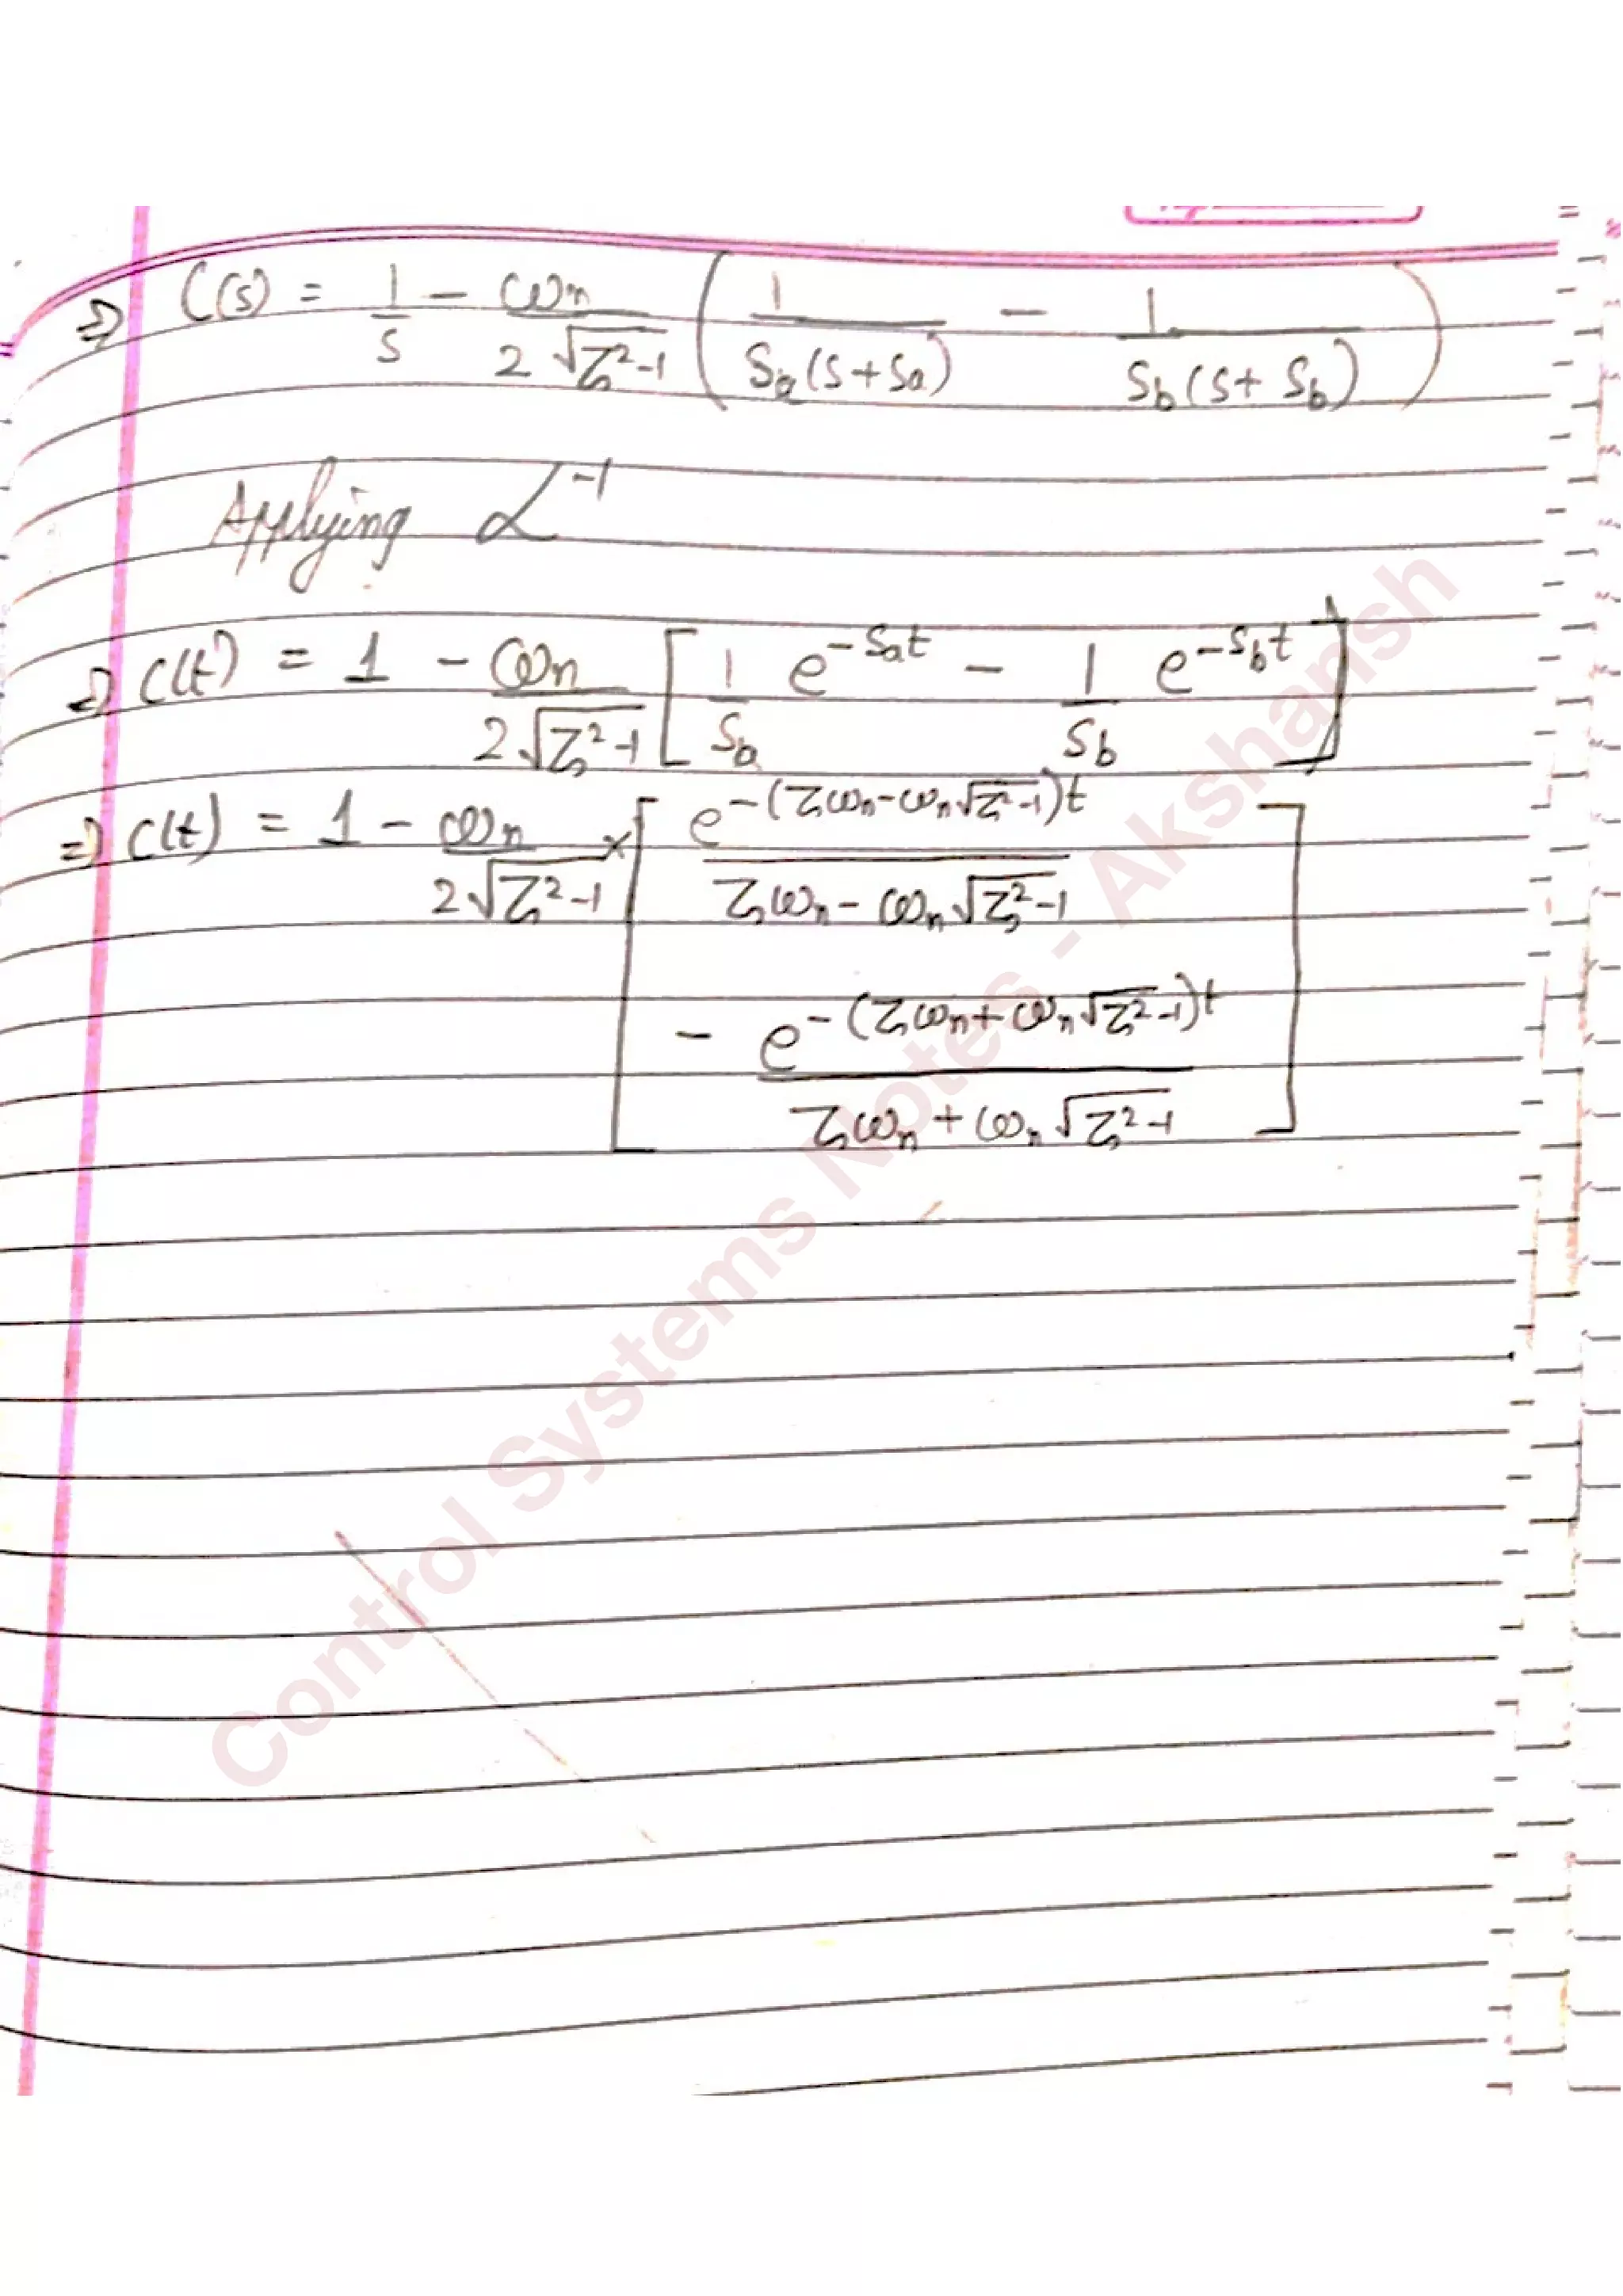 ⇒ C(s) = 1/s - ωn/(2√(ζ²-1)) ( 1/(Sa(s+Sa)) - 1/(Sb(s+Sb)) )
Applying L⁻¹
⇒ C(t) = 1 - ωn/(2√(ζ²-1)) [ 1/Sa e^(-Sat) - 1/Sb e^(-Sbt) ]
⇒ C(t) = 1 - ωn/(2√(ζ²-1)) × [ e^(-(ζωn-ωn√(ζ²-1))t)/(ζωn - ωn√(ζ²-1))
- e^(-(ζωn+ωn√(ζ²-1))t)/(ζωn + ωn√(ζ²-1)) ]
Control Systems Notes - Akshansh